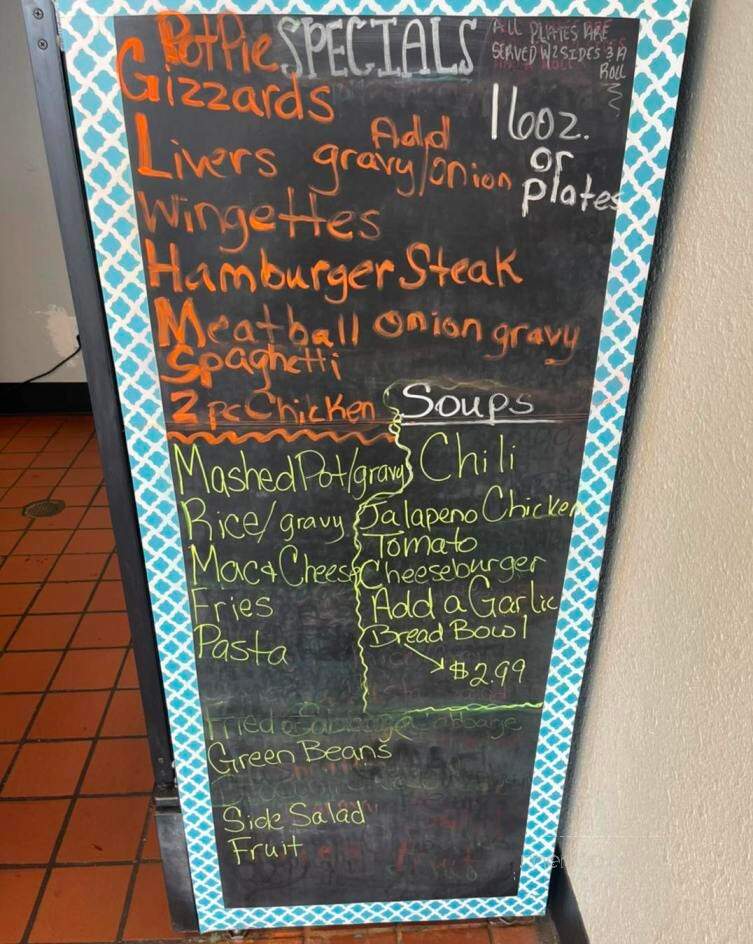 Pot Pie SPECIALS
ALL PLATES ARE
SERVED W2SIDES & A
ROLL
Gizzards
16oz.
or
plates
Livers Add
gravy/onion
Wingettes
Hamburger Steak
Meatball onion gravy
Spaghetti
2 pc Chicken
Mashed Pot/gravy
Rice/gravy
Mac & Cheese
Fries
Pasta
Soups
Chili
Jalapeno Chicken
Tomato
Cheeseburger
Add a Garlic
Bread Bowl
$2.99
Fried Cabbage
Green Beans
Side Salad
Fruit